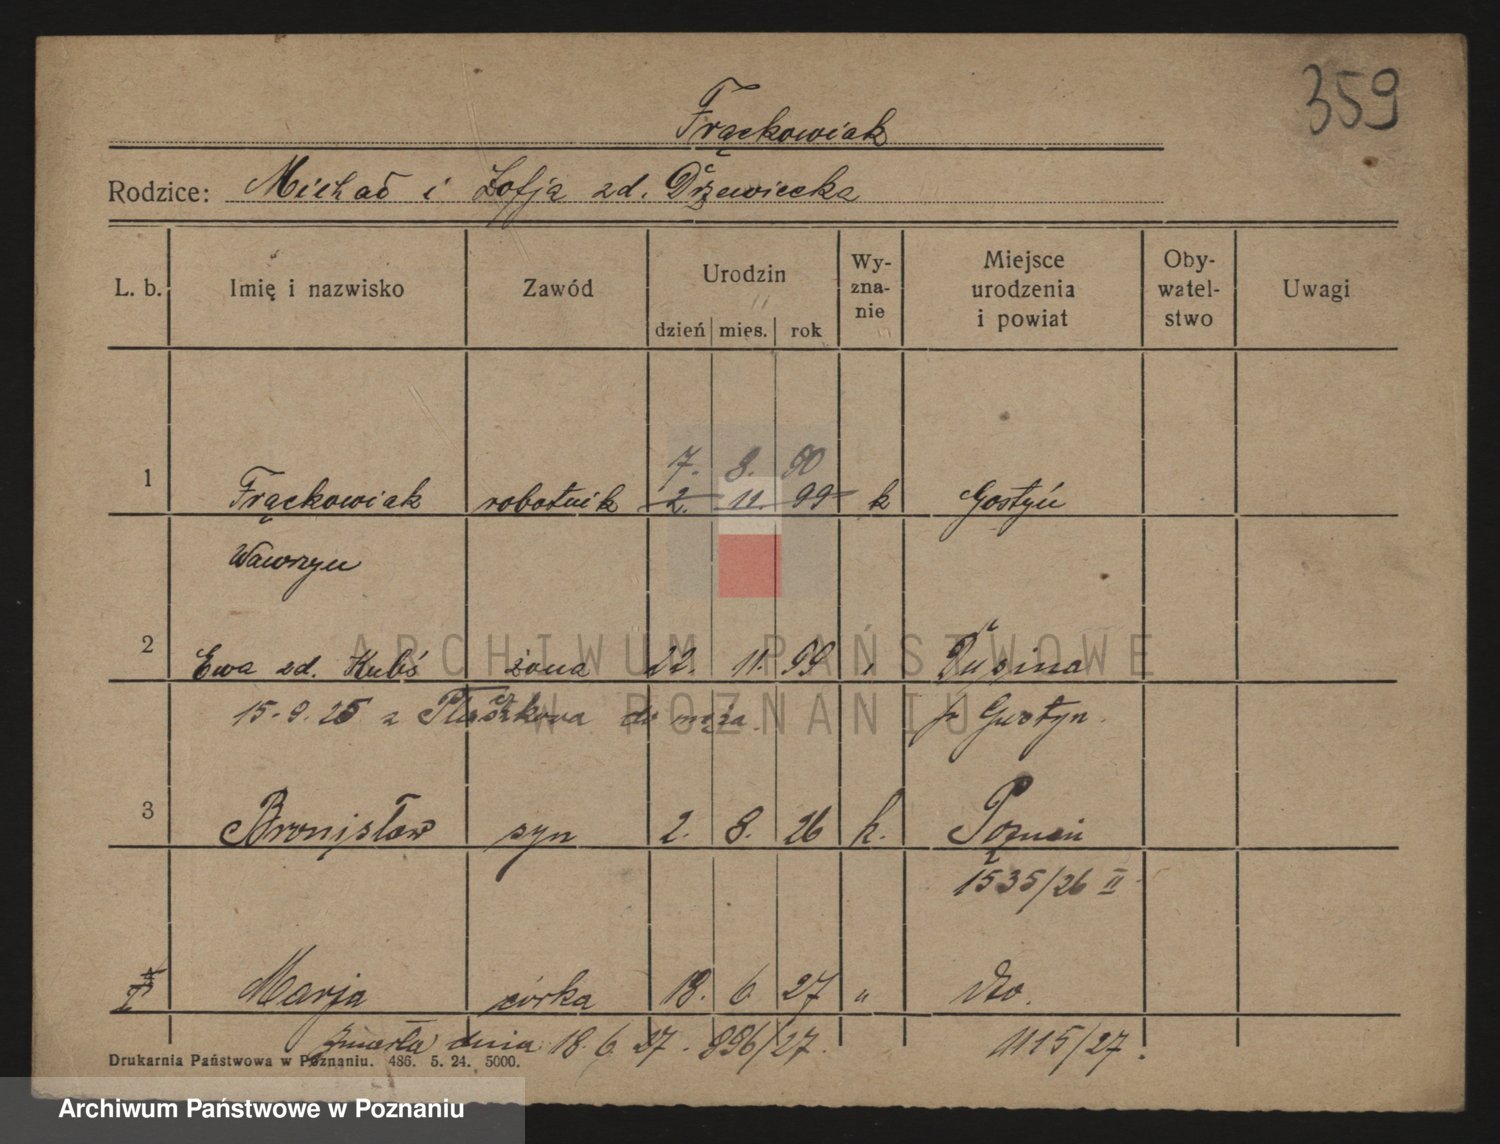 359
Frąckowiak
Rodzice: Michał i Zofja zd. Drzewiecka
L. b. Imię i nazwisko Zawód Urodzin dzień mies. rok Wy-zna-nie Miejsce urodzenia i powiat Oby-watel-stwo Uwagi
7. 8. 90
1 Frąckowiak robotnik 2. 11. 99 k Gostyń
Wawrzyn
2 Ewa zd. Kubś żona 22. 11. 99 " Dusina
15-9.25 z Ptaszkowa do męża. p. Gostyn.
3 Bronisław syn 2. 8. 26 k. Poznań
1535/26 II
4 Marja córka 18. 6. 27 " dto.
zmarła dnia 18.6.27. 896/27. 1115/27.
Drukarnia Państwowa w Poznaniu. 486. 5. 24. 5000.
ARCHIWUM PAŃSTWOWE
W POZNANIU
Archiwum Państwowe w Poznaniu